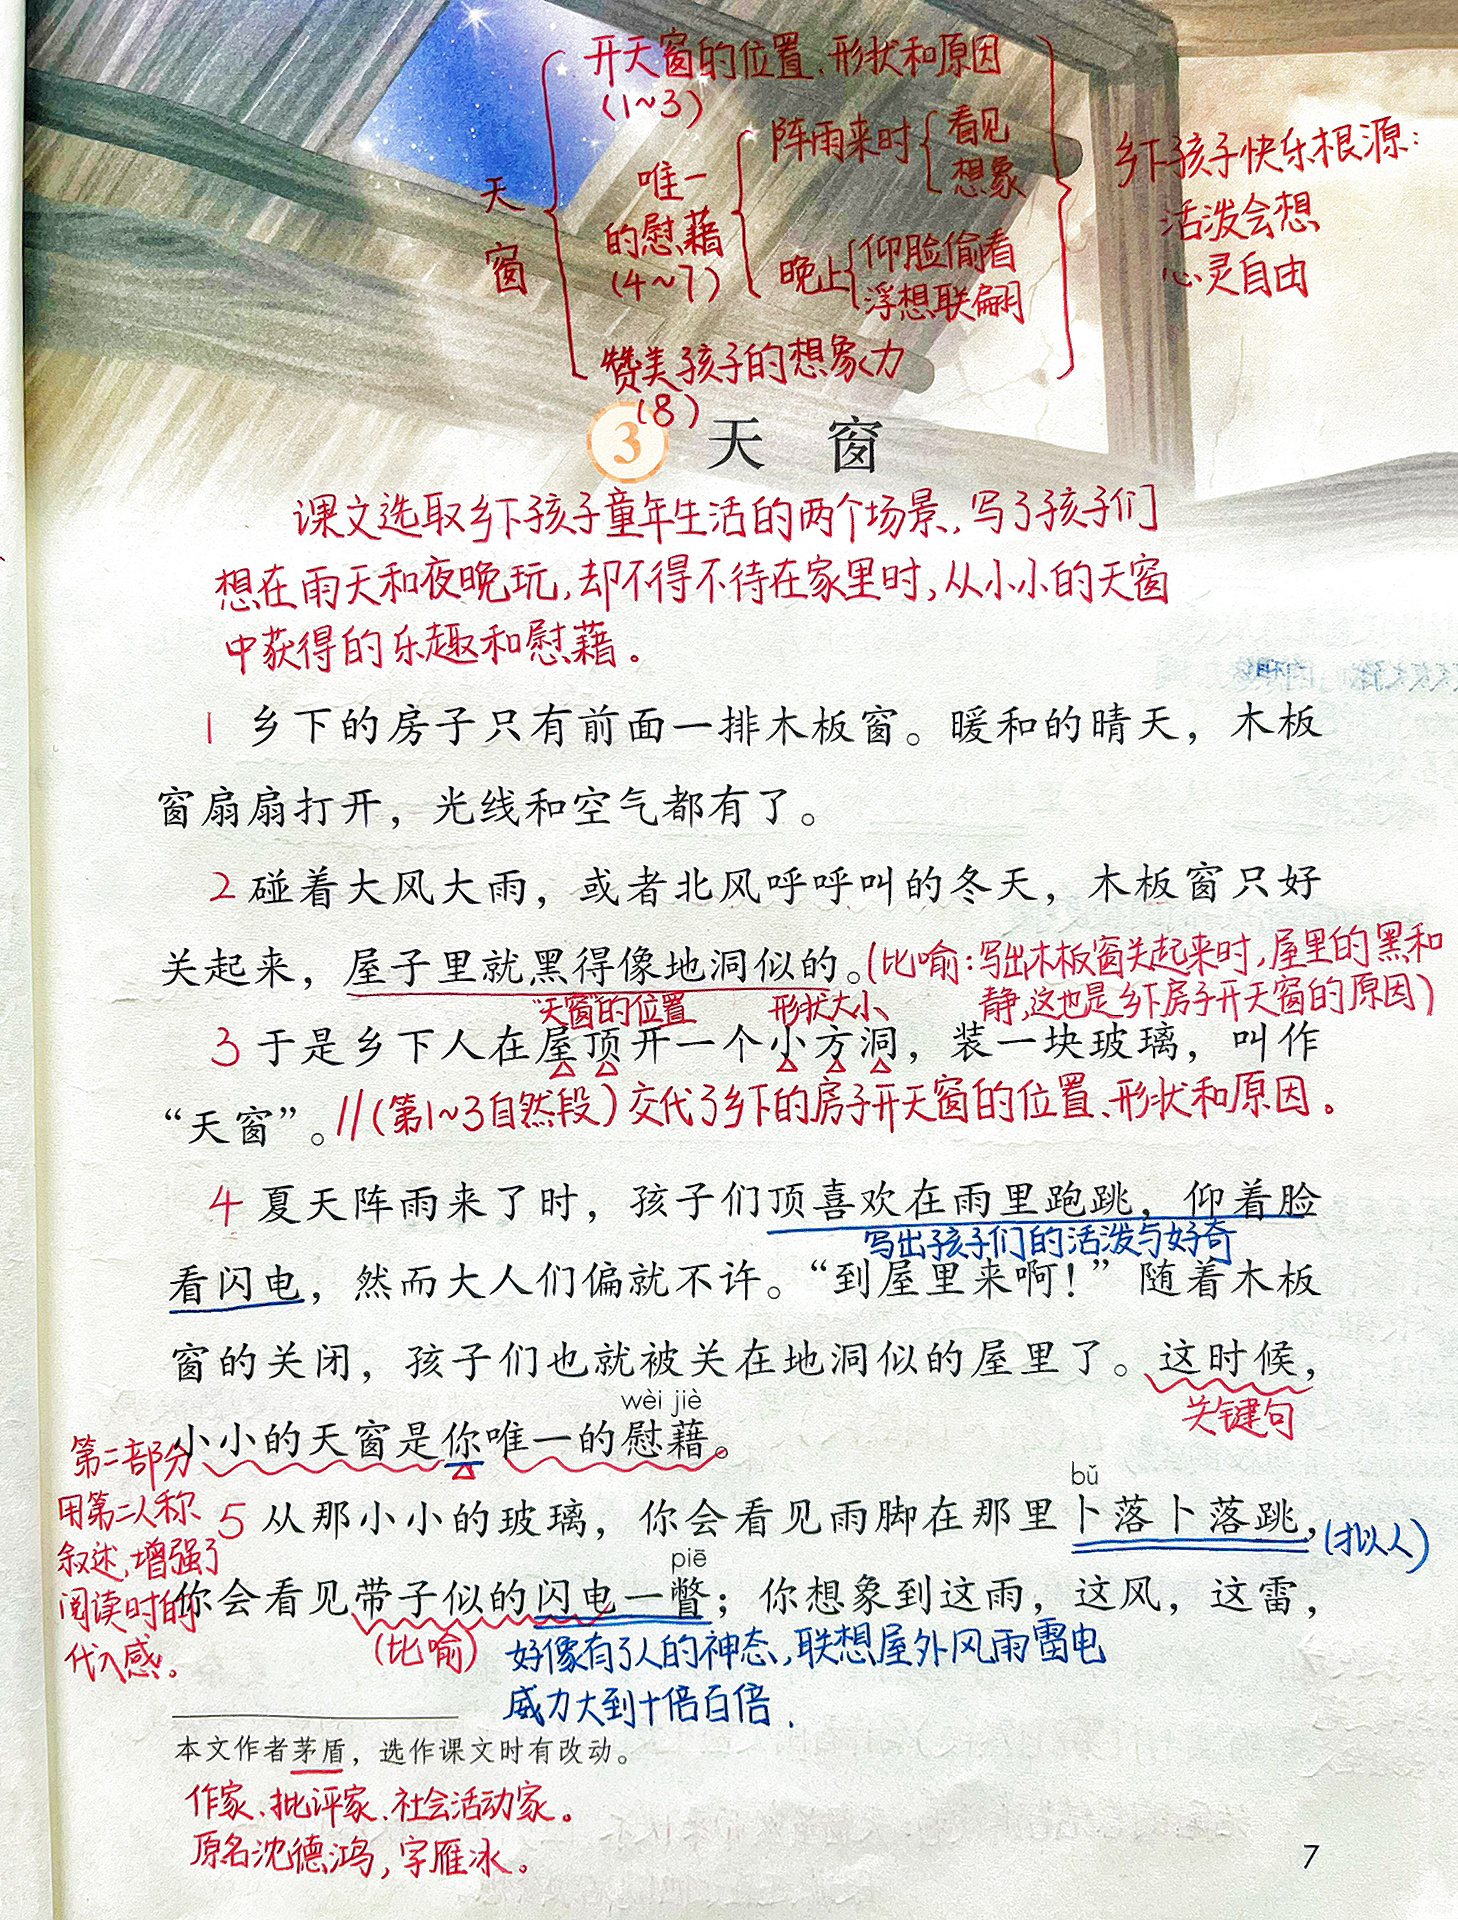 开天窗的位置、形状和原因
(1~3)
天窗
唯一
的慰藉
(4~7)
阵雨来时
看见
想象
晚上
仰脸偷看
浮想联翩
赞美孩子的想象力
(8)
乡下孩子快乐根源:
活泼会想
心灵自由
3 天 窗
课文选取乡下孩子童年生活的两个场景,写了孩子们
想在雨天和夜晚玩,却不得不待在家里时,从小小的天窗
中获得的乐趣和慰藉。
1 乡下的房子只有前面一排木板窗。暖和的晴天，木板
窗扇扇打开，光线和空气都有了。
2 碰着大风大雨，或者北风呼呼叫的冬天，木板窗只好
关起来，屋子里就黑得像地洞似的。(比喻:写出木板窗关起来时,屋里的黑和
静,这也是乡下房子开天窗的原因)
“天窗”的位置 形状大小
3 于是乡下人在屋顶开一个小方洞，装一块玻璃，叫作
“天窗”。//(第1~3自然段)交代了乡下的房子开天窗的位置、形状和原因。
4 夏天阵雨来了时，孩子们顶喜欢在雨里跑跳，仰着脸
写出孩子们的活泼与好奇
看闪电，然而大人们偏就不许。“到屋里来啊！”随着木板
窗的关闭，孩子们也就被关在地洞似的屋里了。这时候，
关键句
wèi jiè
小小的天窗是你唯一的慰藉。
第二部分
用第二人称
叙述,增强了
阅读时的
代入感。
bǔ
5 从那小小的玻璃，你会看见雨脚在那里卜落卜落跳，(拟人)
piē
你会看见带子似的闪电一瞥；你想象到这雨，这风，这雷，
(比喻)
好像有了人的神态,联想屋外风雨雷电
威力大到十倍百倍.
本文作者茅盾，选作课文时有改动。
作家、批评家、社会活动家。
原名沈德鸿,字雁冰。
7